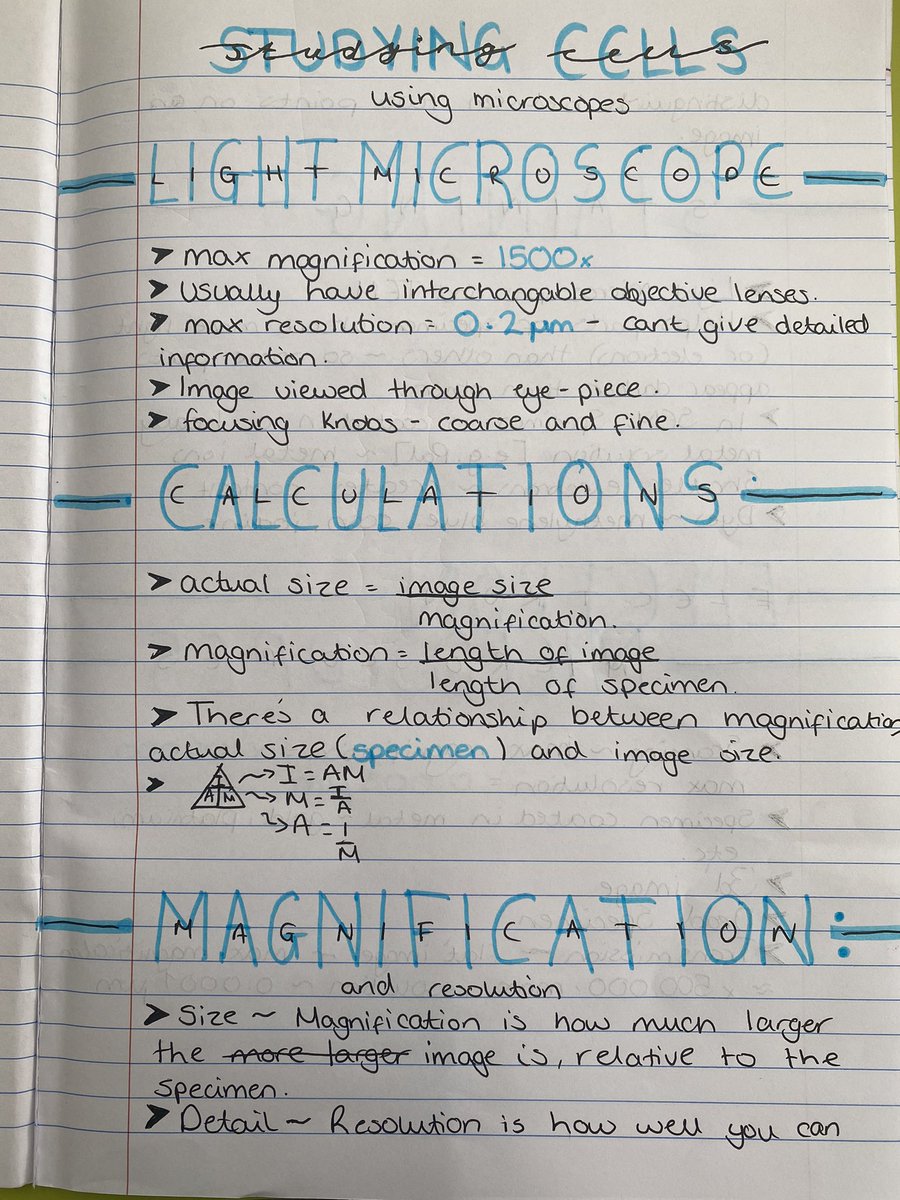 STUDYING CELLS
using microscopes
LIGHT MICROSCOPE
➤ max magnification = 1500x
➤ Usually have interchangable objective lenses.
➤ max resolution = 0.2μm - cant give detailed
information.
➤ Image viewed through eye-piece.
➤ focusing knobs - coarse and fine.
CALCULATIONS
➤ actual size = image size
magnification.
➤ magnification = length of image
length of specimen.
➤ There's a relationship between magnification,
actual size (specimen) and image size.
➤ I A M ~> I = AM
~> M = I/A
~> A = I/M
MAGNIFICATION:
and resolution
➤ Size ~ Magnification is how much larger
the more larger image is, relative to the
specimen.
➤ Detail ~ Resolution is how well you can